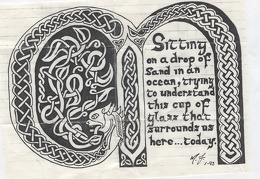 Sitting
on a drop of
Sand in an
ocean, trying
to understand
this cup of
glass that
surrounds us
here... today.